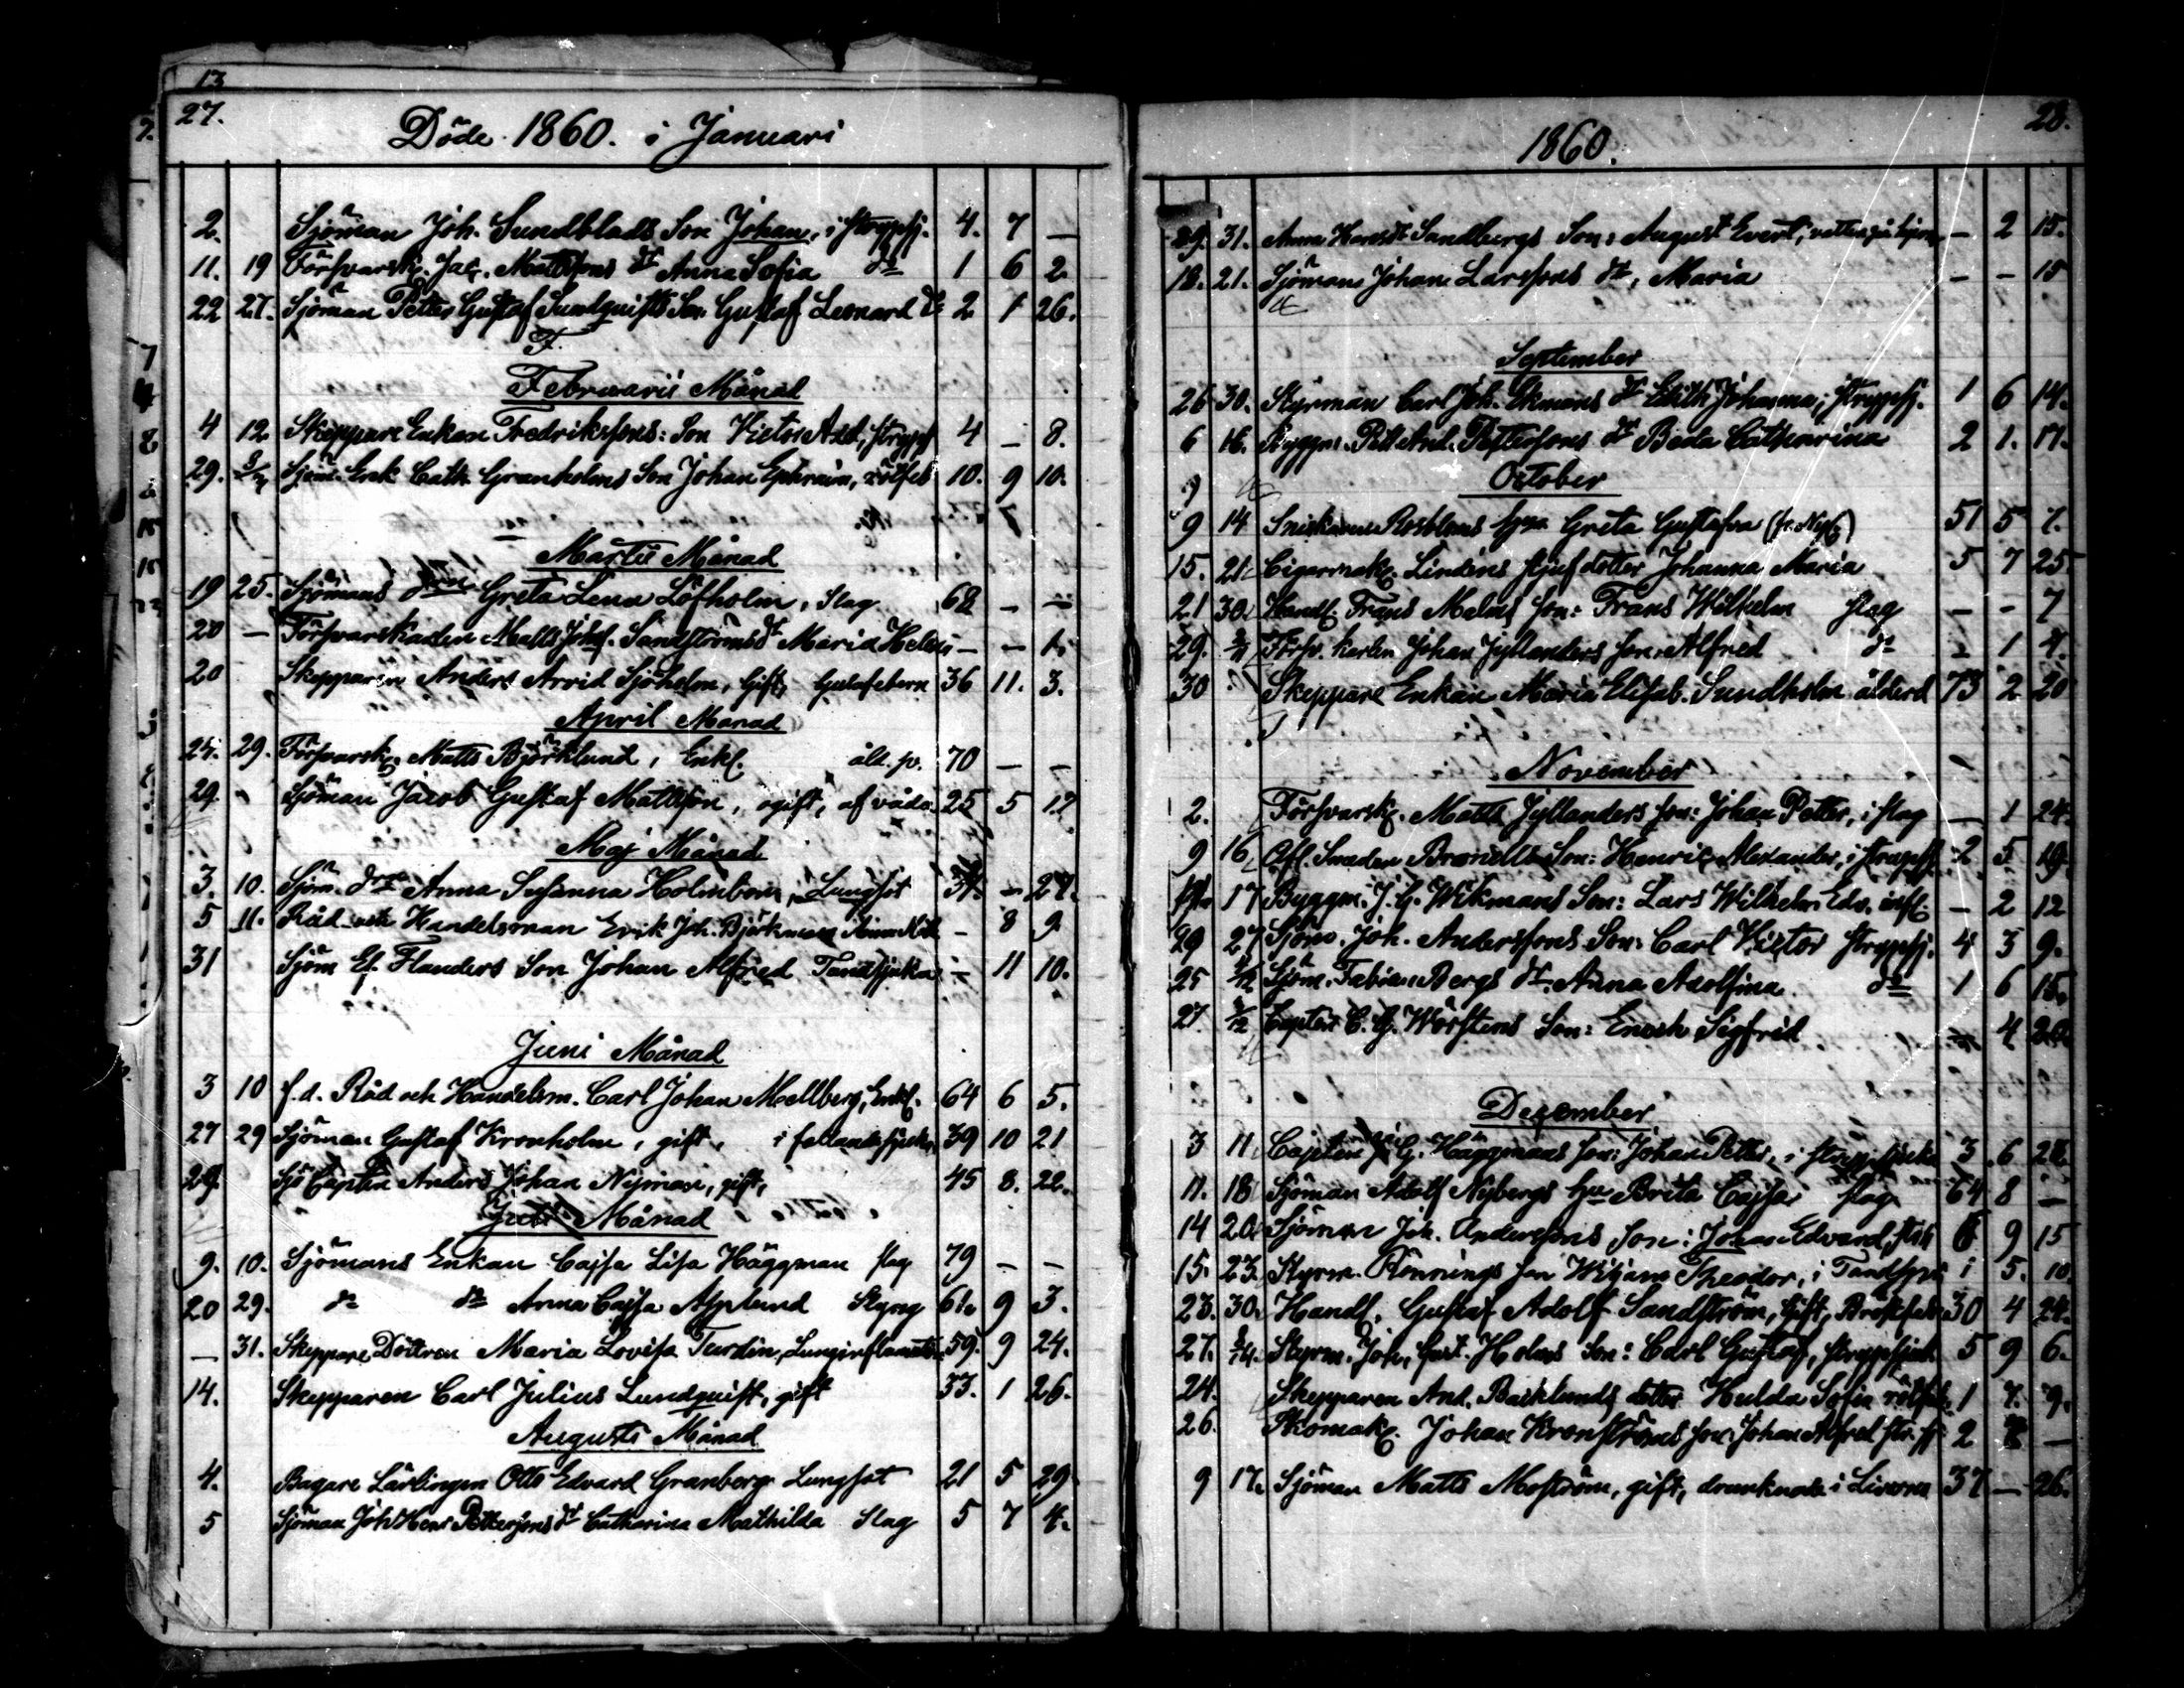 13
27.
Döde 1860. i Januari
2. Sjöman Joh. Sundblads Son Johan, i strypsj. 4. 7 —
11. 19 Försvarsk. Jac. Mattssons dr Anna Sofia do 1 6 2
22 27. Sjöman Petter Gustaf Sundquists Son Gustaf Leonard do 2 1 26.
F
Februarii Månad
4 12 Skeppare Enkan Fredrikssons: Son Victor Axel, strypsj 4 — 8.
29. Sjöm. Enk Cath. Granholms Son Johan Ephraim, rötfeb 10. 9 10.
Martii Månad
19 25. Sjömans Greta Lena Löfholm, Slag 68 — —
20 — Försvarskarlen Matts Johs. Sandströms dr Maria Helen — — 1.
20 Skepparen Anders Arvid Sjöholm, Gift, 36 11. 3.
April Månad
25. 29. Försvarsk. Matts Björklund, Enkl. åld. 70 — —
29 Sjöman Jacob Gustaf Mattsson, ogift, af våda. 25 5 17
Maj Månad
3. 10. Sjöm. Anna Susanna Holmbom, Lungsot — 27.
5 11. Råd och Handelsman Erik Joh. Björkmans — 8 9
31 Sjöm Ef. Flanders Son Johan Alfred Tandsjuka — 11 10.
Juni Månad
3 10 f.d. Råd och Handelsm. Carl Johan Mellberg, Enkl. 64 6 5.
27 29 Sjöman Gustaf Kronholm, gift, i fallandesjukan 39 10 21
29 Sjö Capten Anders Johan Nyman, gift, 45 8. 22.
Juli Månad
9. 10. Sjömans Enkan Cajsa Lisa Häggman slag 79 — —
20 29. do do Anna Cajsa Asplund Styng 61. 9 3.
— 31. Skeppare Dottren Maria Lovisa Turdin, Lunginflamation 59. 9 24.
14. Skepparen Carl Julius Lundquist, gift 33. 1 26.
Augusti Månad
4. Bagare Lärlingen Otto Edvard Granberg Lungsot 21 5 29
5 Sjöman Joh Henr Pettersons dr Catharina Mathilda Slag 5 7 4.
28.
1860.
29. 31. Anna Sandbergs Son: August Evert, — 2 15.
18. 21. Sjömans Johan Larssons dr, Maria — — 15
September
26 30. Styrman Carl Joh. Ekmans dr Edith Johanna, strypsj. 1 6 14.
6 16. Byggm. And. Pettersons dr Beda Catharina 2 1. 17.
October
9 14 Snickaren Rosbloms Greta Gustafva 51 5 7.
15. 21. Cigarmak. Lindéns stjufdotter Johanna Maria 5 7 25
21 30. Handl. Frans Malms Son: Frans Wilhelm slag — — 7
29. Försv. karlen Johan Jyllanders son: Alfred do — 1 4.
30 Skeppare Enkan Maria Elisab. Sundholm ålderd 73 2 20
November
2. Försvarsk. Matts Jyllanders son: Johan Petter, i slag — 1 24.
9 16 Smeden Son: Henric Alexander, i strupsj. 2 5 19
17 Byggm. J. G. Wikmans Son: Lars Wilhelm Edv. — 2 12
29 27 Sjöm. Joh. Anderssons Son: Carl Victor strypsj. 4 3 9.
25 2/12 Sjöm. Fabian Bergs dr. Anna Adolfina do 1 6 15.
27 2/12 Capten C. G. Son: Enoch Sigfrid — 4
December
3 11 Capten G. Häggmans son: Johan Petter, i strypsjuka 3 6
11. 18 Sjöman Adolf Nybergs Brita Cajsa slag 64 8 —
14 20. Sjöman Joh. Anderssons Son: Johan Edvard, 9 15
15. 23. Styrm. Rönnings son Wiljam Theodor, i Tandspr 1 5. 10
23. 30. Handl. Gustaf Adolf Sandström, gift, 30 4 24.
27. Styrm. Joh. Gust. Holms Son: Carl Gustaf, strypsjuk. 5 9 6.
24. Skepparen And. Backlunds dotter Hulda Sofia rötfeb. 1 7. 9.
26. Skomak. Johan Kronströms son Johan Alfred str. sj 2 8 —
9 17. Sjöman Matts Moström, gift, drunknade i 37 — 26.